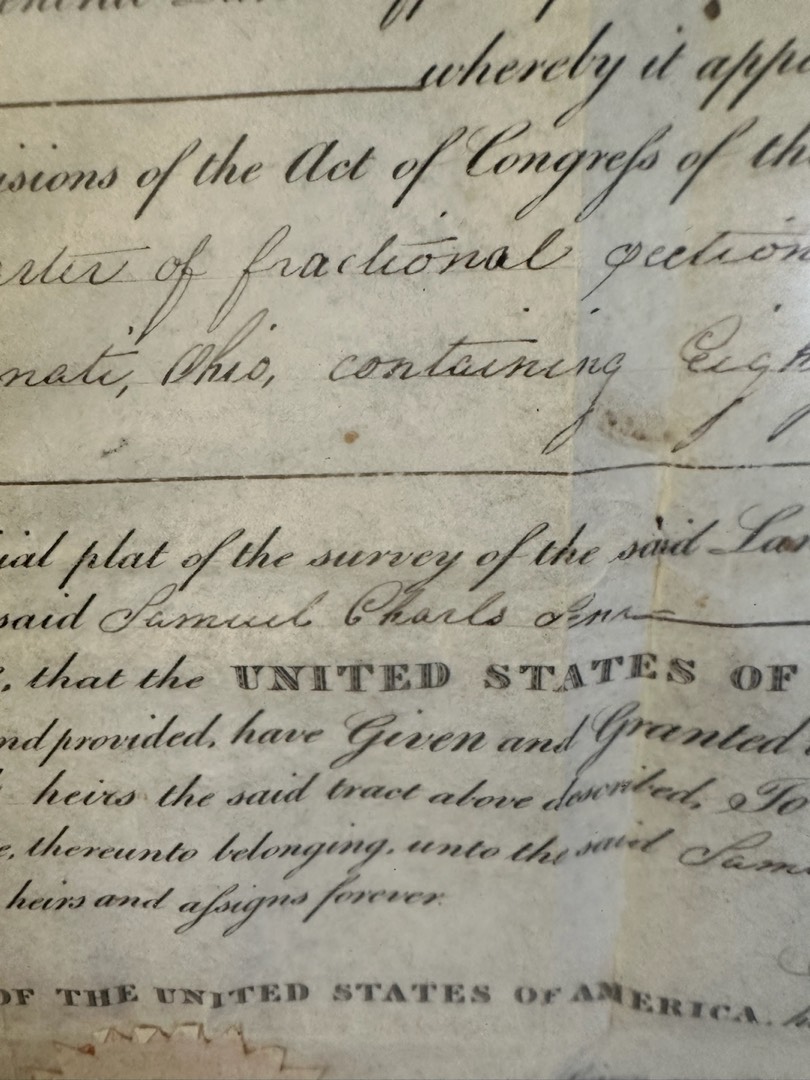 whereby it appe
isions of the Act of Congreſs of th
arter of fractional section
nati, Ohio, containing Eigh
ial plat of the survey of the said Lan
said Samuel Charls Senr
, that the UNITED STATES OF
nd provided, have Given and Granted
heirs the said tract above described, To
e, thereunto belonging, unto the said Samu
heirs and aſsigns forever.
OF THE UNITED STATES OF AMERICA.